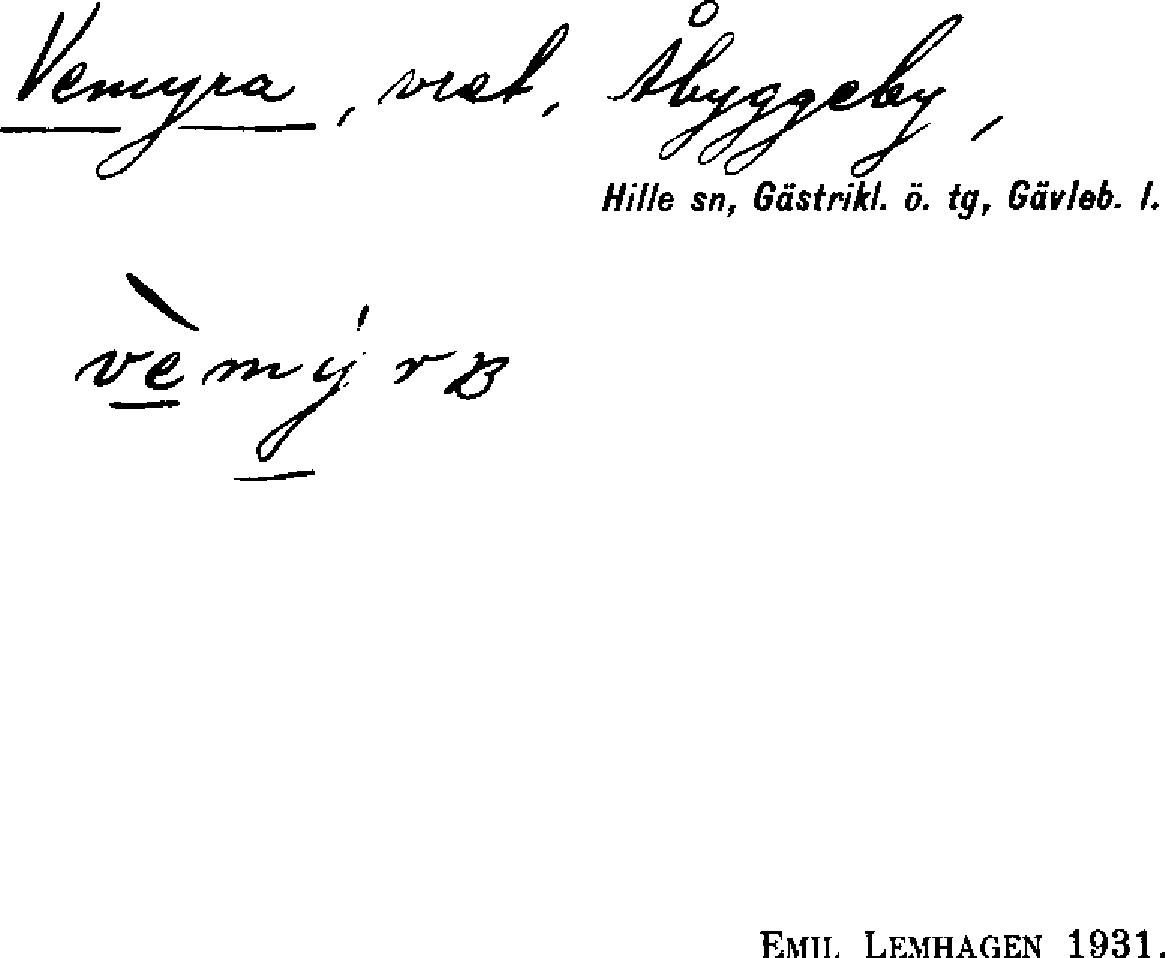 Vemyra, vret, Åbyggeby,
Hille sn, Gästrikl. ö. tg, Gävleb. l.
EMIL LEMHAGEN 1931.